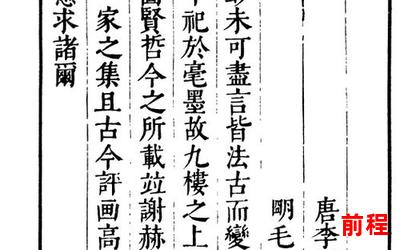 唐李
明毛
未可盡言皆法古而變
祀於毫墨故九樓之上
賢哲今之所載竝謝赫
家之集且古今評画高
求諸爾
前程